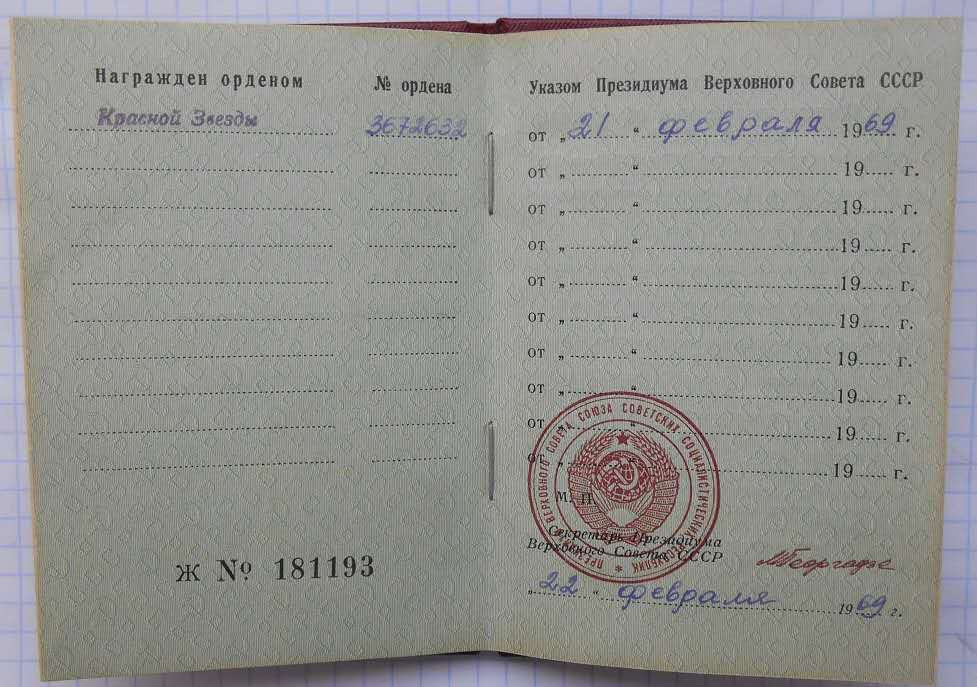 Награжден орденом
№ ордена
Красной Звезды
3672632
Ж № 181193
Указом Президиума Верховного Совета СССР
от „ 21 “ февраля 1969 г.
от „ “ 19 г.
от „ “ 19 г.
от „ “ 19 г.
от „ “ 19 г.
от „ “ 19 г.
от „ “ 19 г.
от „ “ 19 г.
от „ “ 19 г.
от „ “ 19 г.
ПРЕЗИДИУМ ВЕРХОВНОГО СОВЕТА СОЮЗА СОВЕТСКИХ СОЦИАЛИСТИЧЕСКИХ РЕСПУБЛИК
М. П.
Секретарь Президиума
Верховного Совета СССР
МГеоргадзе
„ 22 “ февраля 1969 г.